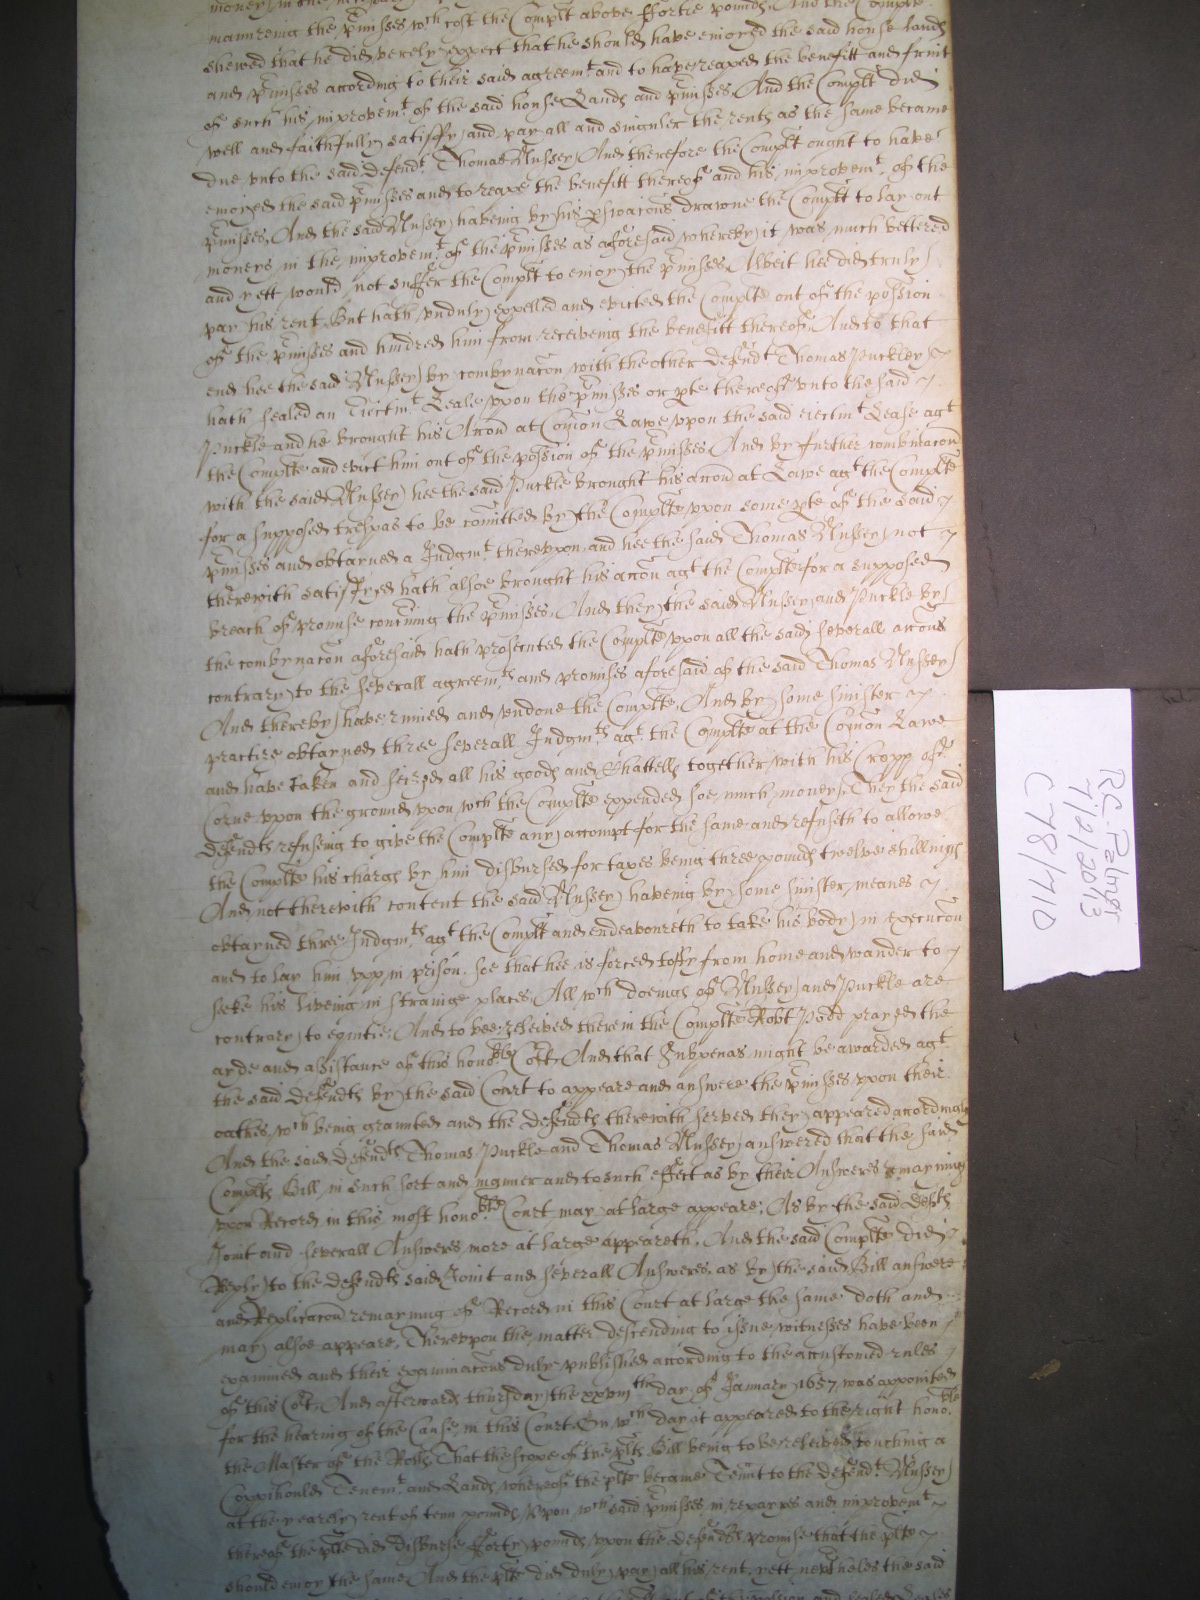 manureing the p'misses wch cost the Complt above ffortie pounds, And the Complt
shewed that he did verely expect that he should have enioyed the said house lands
and p'misses according to their said agreemt and to have reaped the benefitt and fruit
of such his improvemt of the said house Lands and p'misses And the Complt did
well and faithfully satisfy and pay all and singuler the rents as the same became
due vnto the said Defendt Thomas Mussey And therefore the Complt ought to have
enioyed the said p'misses and to reape the benefitt thereof and his improvemt of the
p'misses, And the said Mussey haveing by his p'swacons drawne the Complt to lay out
moneys in the improvemt of the p'misses as aforesaid whereby it was much bettered
and yett would not suffer the Complt to enioy the p'misses Albeit hee did truly
pay his rent But hath vnduly expelled and evicted the Complt out of the possion
of the p'misses and hindred him from receiveing the benefitt thereof And to that
end hee the said Mussey by combynacon with the other Defendt Thomas Puckley
hath sealed an Eiectmt Lease vpon the p'misses or pte thereof vnto the said
Puckle and he brought his Accon at Comon Lawe vpon the said eiectmt Lease agt
the Complt and evict him out of the possion of the p'misses And by further combinacon
with the said Mussey hee the said Puckle brought his accon at Lawe agt the Complt
for a supposed trespas to be comitted by the Complt vpon some pte of the said
p'misses and obtayned a Judgmt therevpon and hee the said Thomas Mussey not
therewith satisfyed hath alsoe brought his accon agt the Complt for a supposed
breach of promise concning the p'misses, And they the said Mussey and Puckle by
the combynacon aforesaid hath prosecuted the Complt vpon all the said severall accons
contrary to the severall agreemts and promises aforesaid of the said Thomas Mussey
And thereby have ruined and vndone the Complt, And by some sinister
practise obtayned three severall Judgmts agt the Complt at the Comon Lawe
and have taken and seized all his goods and Chattells together with his Cropp of
Corne vpon the ground vpon wch the Complt expended soe much money, They the said
defendts refuseing to give the Complt any accompt for the same and refuseth to allowe
the Complt his charge by him disbursed for taxes being three pounds twelve shillings
And not therewith content the said Mussey haveing by some sinister meanes
obtayned three Judgmts agt the Complt and endeavoreth to take his body in execucon
and to lay him vpp in prison, soe that hee is forced to fly from home and wander to
seeke his liveing in strainge places, All wch doeings of Mussey and Puckle are
contrary to equitie, And to bee releived therein the Complt Robt Podd prayed the
ayde and assistance of this honoble Cort, And that Subpenas might be awarded agt
the said Defendts by the said Court to appeare and answere the p'misses vpon their
oathes, wch being graunted and the Defendts therewith served they appeared accordingly
And the said Defendts Thomas Puckle and Thomas Mussey answered that the said
Complts Bill in such sort and manner and to such effect as by their Answeres remayning
vpon Record in this most honoble Court may at large appeare, As by the said Defts
Joint and severall Answeres more at large appeareth, And the said Complt did
Reply to the defendts said Joint and severall Answeres, as by the said Bill answere
and Replicacon remayning of Record in this Court at large the same doth and
may alsoe appeare, Therevpon the matter descending to issue witnesses have been
examined and their examinacons duly published according to the accustomed rules
of this Cort, And afterwards thursday the xxviijth day of January 1657 was appointed
for the hearing of the Cause in this Court, On wch day it appeared to the right honoble
the Master of the Rolls, That the scope of the plts Bill being to be releived touching a
Coppihould Tenemt and Lands, whereof the plt became Tennt to the Defendt Mussey
at the yearely rent of tenn pounds, Vpon wch said p'misses in repayres and improvemt
thereof the plt did disburse forty pounds, vpon the Defendts promise that the plt
should enioy the same And the plt did duly pay all his rent, yett nevtheles the said
R.C. Palmer
7/2/2013
C78/710